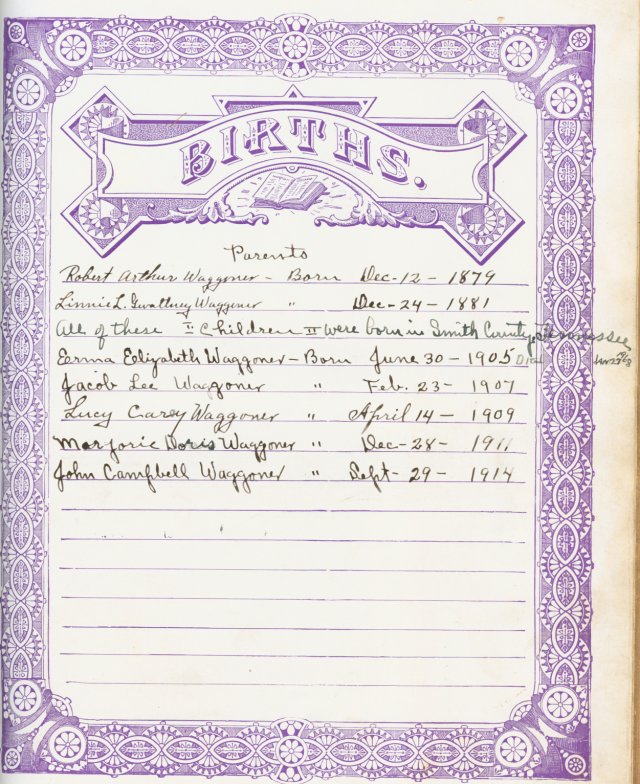 BIRTHS.
Parents
Robert Arthur Waggoner - Born Dec-12-1879
Linnie L. Gwaltney Waggoner " Dec-24-1881
All of these II Children II were born in Smith County, Tennessee
Erma Elizabeth Waggoner - Born June 30-1905 Died
Jacob Lee Waggoner " Feb. 23-1907
Lucy Carey Waggoner " April 14-1909
Marjorie Doris Waggoner " Dec-28-1911
John Campbell Waggoner " Sept-29-1914